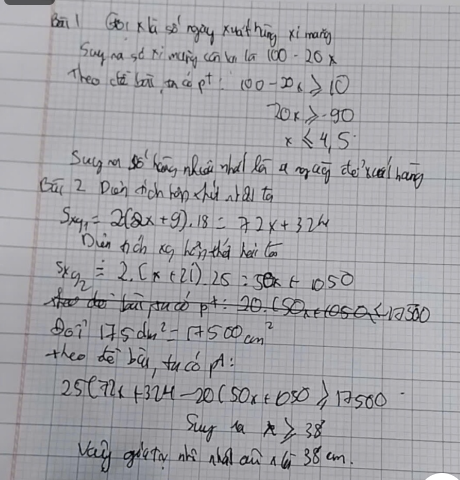 Bài 1 Gọi x là số ngày xuất hàng xi măng
Suy ra số xi măng còn lại là 100 - 20x
Theo đề bài, ta có pt: 100 - 20x ≥ 10
20x ≥ -90
x ≤ 4,5
Suy ra số hàng nhiều nhất là 4 ngày để xuất hàng
Bài 2 Diện tích hộp thứ nhất ta
Sxq1 = 2(2x + 9).18 = 72x + 324
Diện tích xq hộp thứ hai ta
Sxq2 = 2.(x + 21).25 = 50x + 1050
theo đề bài ta có pt: 20.(50x + 1050 ≤ 17500
Đổi 175 dm² = 17500 cm²
theo đề bài, ta có pt:
25(72x + 324 - 20(50x + 1050 ≥ 17500
Suy ra x ≥ 38
Vậy giá trị nhỏ nhất của x là 38 cm.